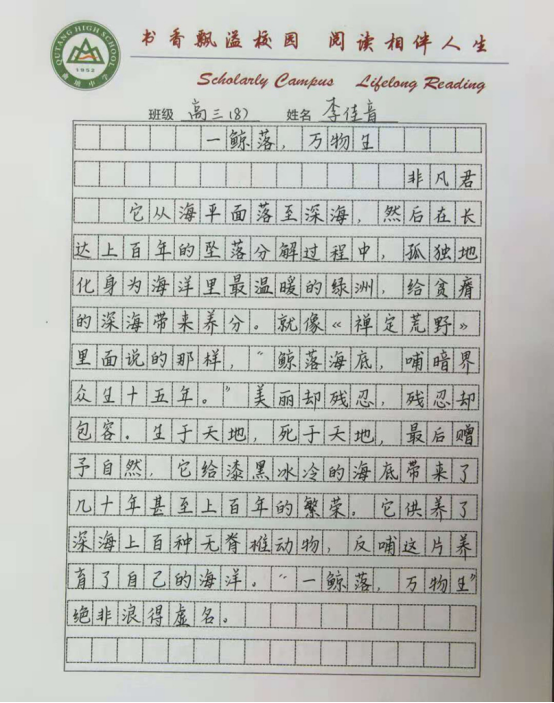 QUTANG HIGH SCHOOL
1952
曲塘中学
书香飘溢校园 阅读相伴人生
Scholarly Campus Lifelong Reading
班级 高三(8) 姓名 李佳音
一鲸落，万物生
非凡君
它从海平面落至深海，然后在长
达上百年的坠落分解过程中，孤独地
化身为海洋里最温暖的绿洲，给贫瘠
的深海带来养分。就像《禅定荒野》
里面说的那样，“鲸落海底，哺暗界
众生十五年。”美丽却残忍，残忍却
包容．生于天地，死于天地，最后赠
予自然，它给漆黑冰冷的海底带来了
几十年甚至上百年的繁荣。它供养了
深海上百种无脊椎动物，反哺这片养
育了自己的海洋。“一鲸落，万物生”
绝非浪得虚名。